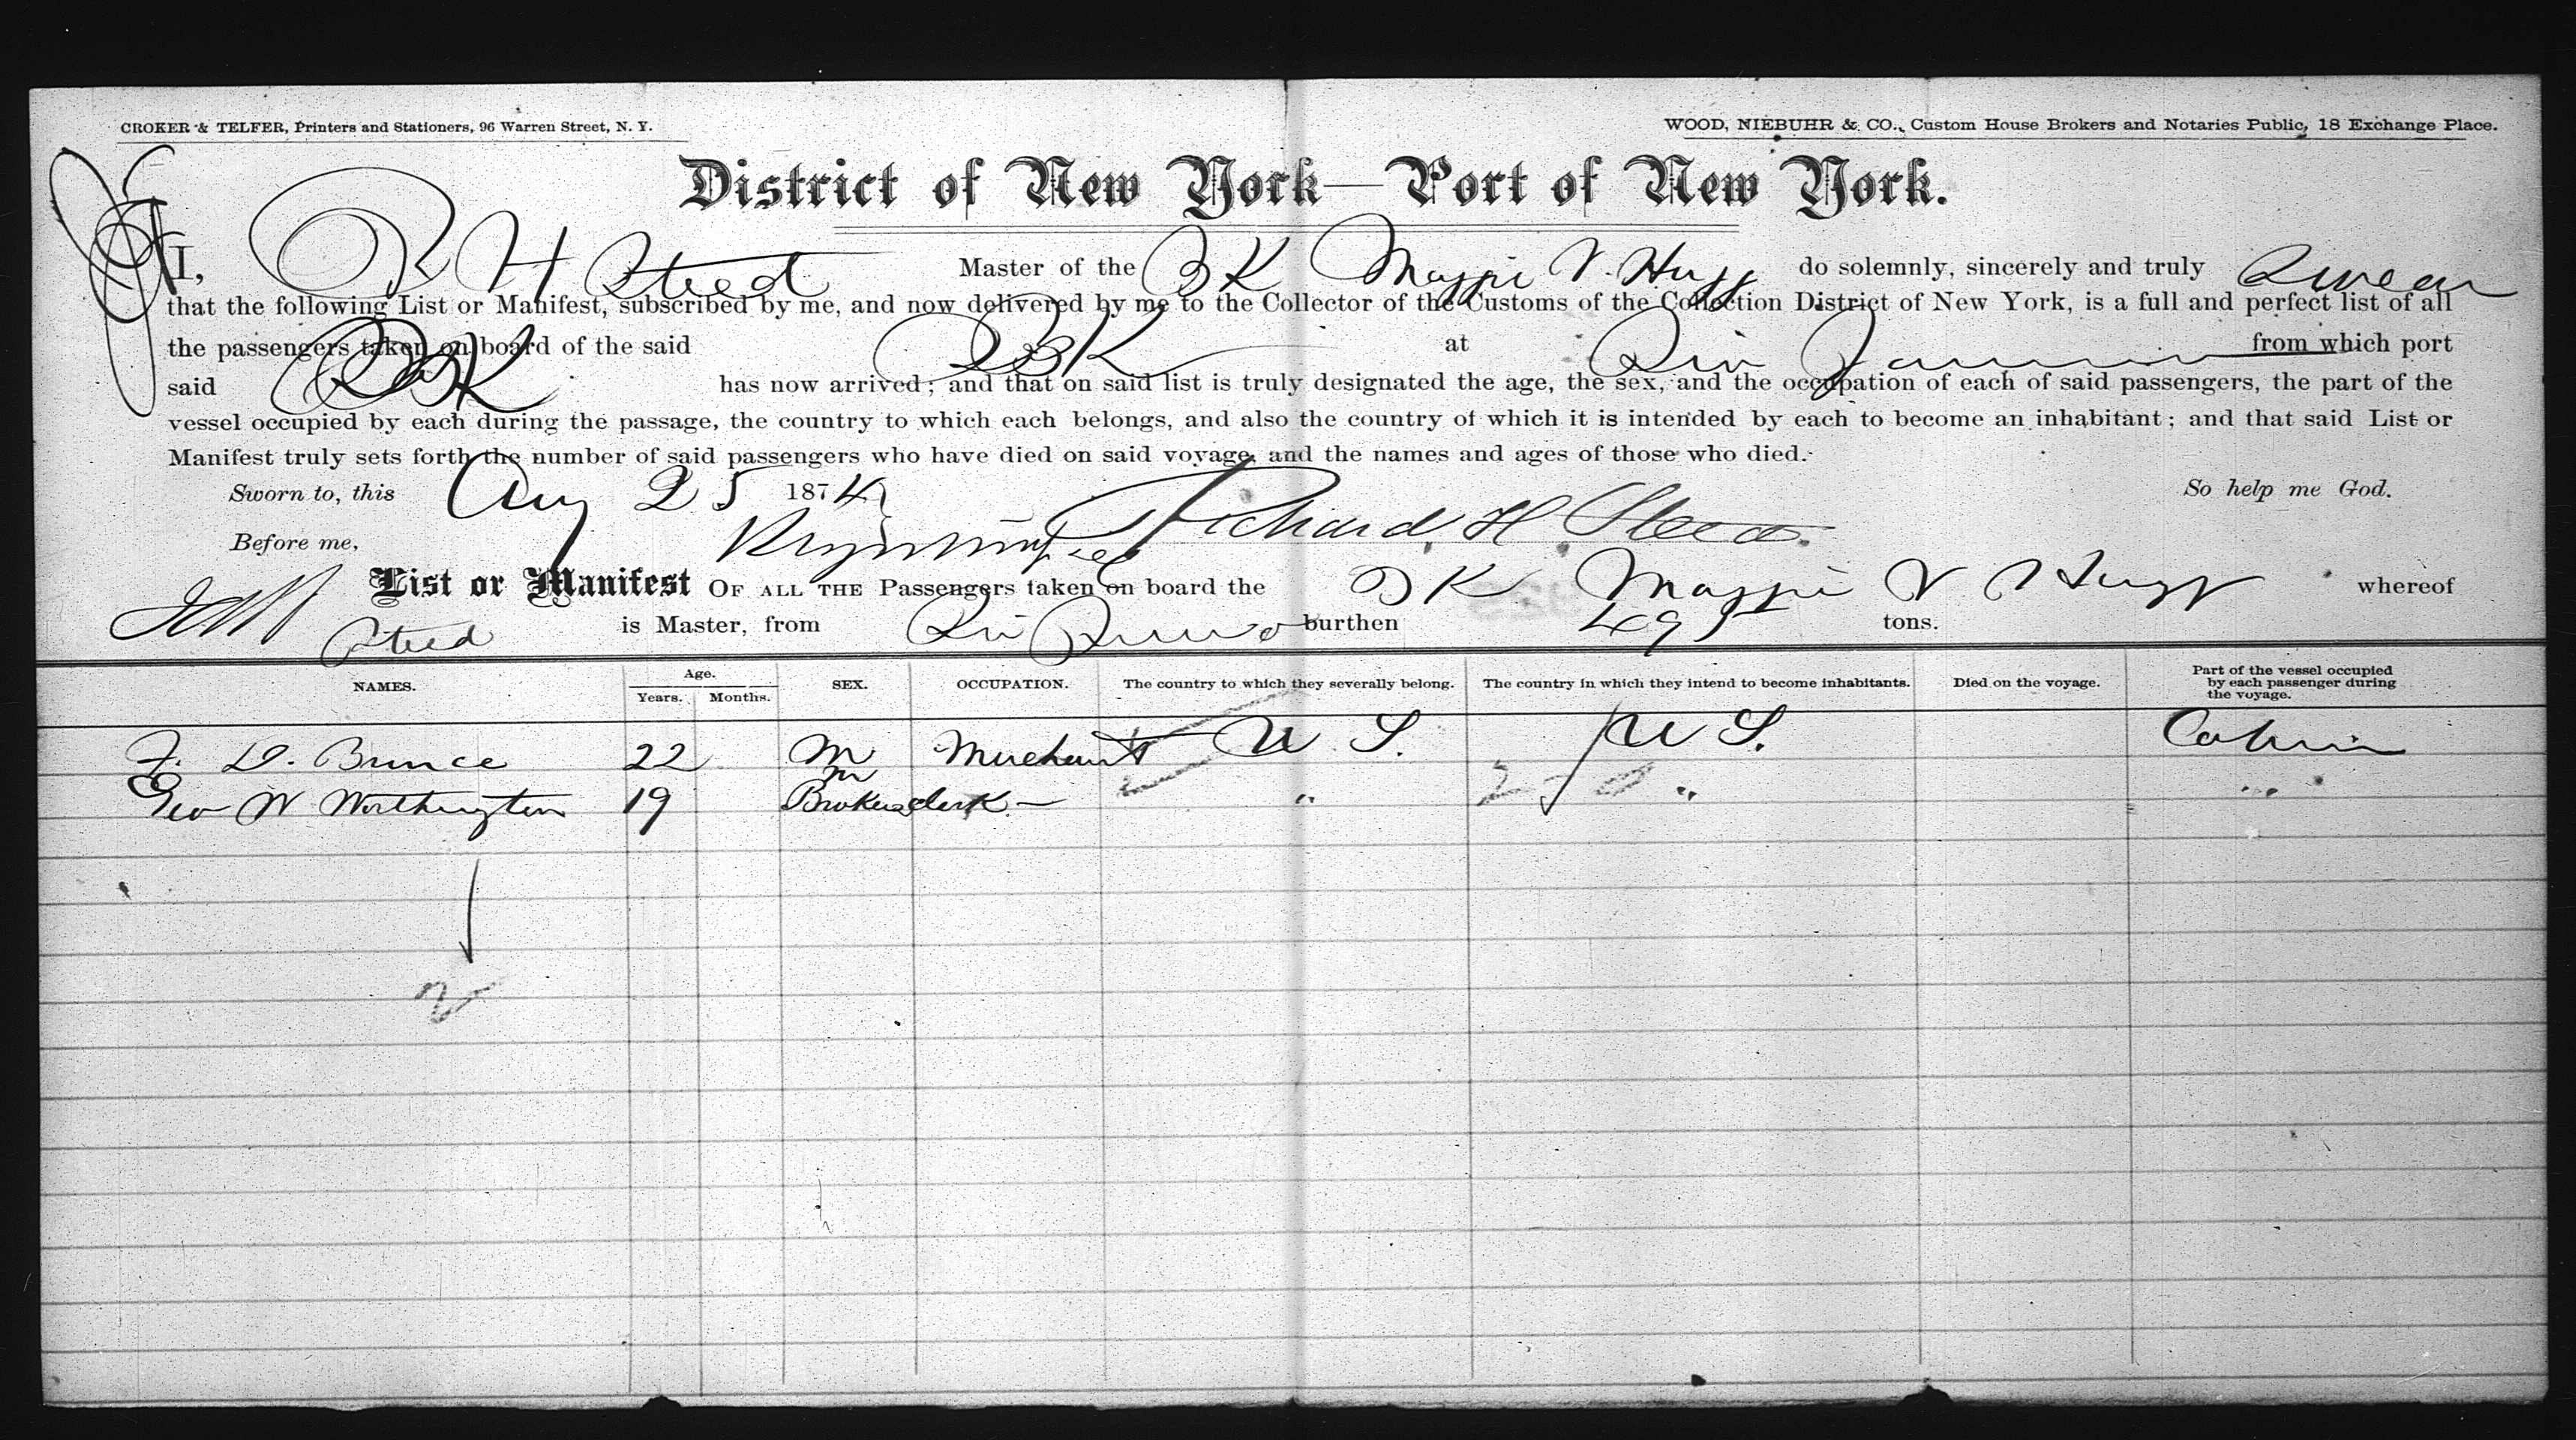 CROKER & TELFER, Printers and Stationers, 96 Warren Street, N. Y.
WOOD, NIEBUHR & CO., Custom House Brokers and Notaries Public, 18 Exchange Place.
District of New York—Port of New York.
I, R H Steed Master of the BK Maggie V. Hugg do solemnly, sincerely and truly Swear
that the following List or Manifest, subscribed by me, and now delivered by me to the Collector of the Customs of the Collection District of New York, is a full and perfect list of all
the passengers taken on board of the said BK at Rio Janeiro from which port
said BK has now arrived; and that on said list is truly designated the age, the sex, and the occupation of each of said passengers, the part of the
vessel occupied by each during the passage, the country to which each belongs, and also the country of which it is intended by each to become an inhabitant; and that said List or
Manifest truly sets forth the number of said passengers who have died on said voyage, and the names and ages of those who died.
Sworn to, this Aug 25 1874 So help me God.
Before me, Richard H Steed
List or Manifest OF ALL THE Passengers taken on board the BK Maggie V Hugg whereof
Steed is Master, from Rio burthen 495 tons.
NAMES. Age. Years. Months. SEX. OCCUPATION. The country to which they severally belong. The country in which they intend to become inhabitants. Died on the voyage. Part of the vessel occupied by each passenger during the voyage.
F. D. Bunce 22 M Merchant U S. U S. Cabin
Geo W Worthington 19 M Brokers clerk — " " "
2